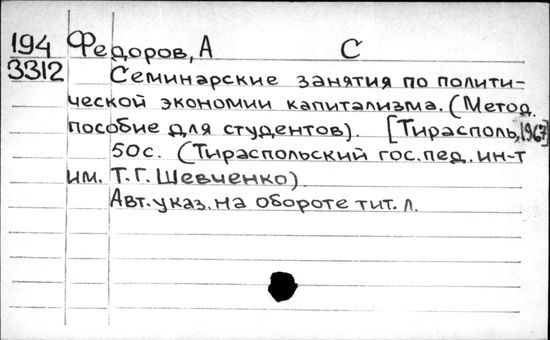 194 Федоров, А С
3312 Семинарские занятия по полити-
ческой экономии капитализма. (Метод.
пособие для студентов). [Тирасполь, 1967]
50с. (Тираспольский гос. пед. ин-т
им. Т. Г. Шевченко)
Авт. указ. на обороте тит. л.